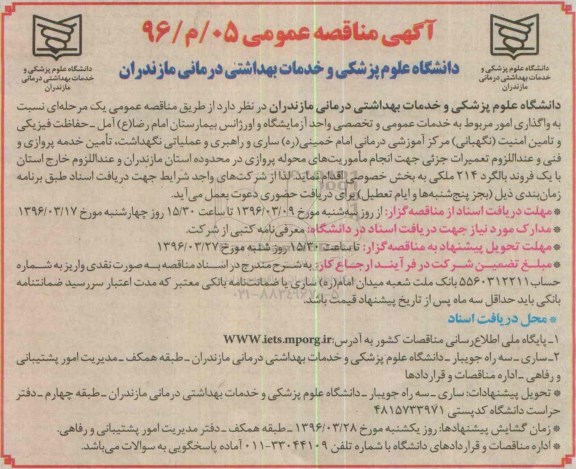 آگهی مناقصه عمومی ۰۵/م/۹۶
دانشگاه علوم پزشکی و خدمات بهداشتی درمانی مازندران
دانشگاه علوم پزشکی و
خدمات بهداشتی درمانی
مازندران
دانشگاه علوم پزشکی و
خدمات بهداشتی درمانی
مازندران
دانشگاه علوم پزشکی و خدمات بهداشتی درمانی مازندران در نظر دارد از طریق مناقصه عمومی یک مرحله‌ای نسبت
به واگذاری امور مربوط به خدمات عمومی و تخصصی واحد آزمایشگاه و اورژانس بیمارستان امام رضا(ع) آمل ـ حفاظت فیزیکی
و تامین امنیت (نگهبانی) مرکز آموزشی درمانی امام خمینی(ره) ساری و راهبری و عملیاتی نگهداشت، تأمین خدمه پروازی و
فنی و عنداللزوم تعمیرات جزئی جهت انجام مأموریت‌های محوله پروازی در محدوده استان مازندران و عنداللزوم خارج استان
با یک فروند بالگرد ۲۱۴ ملکی به بخش خصوصی اقدام نماید. لذا از شرکت‌های واجد شرایط جهت دریافت اسناد طبق برنامه
زمان‌بندی ذیل (بجز پنج‌شنبه‌ها و ایام تعطیل) برای دریافت حضوری دعوت بعمل می‌آید.
* مهلت دریافت اسناد از مناقصه گزار: از روز سه‌شنبه مورخ ۱۳۹۶/۰۳/۰۹ تا ساعت ۱۵/۳۰ روز چهارشنبه مورخ ۱۳۹۶/۰۳/۱۷
* مدارک مورد نیاز جهت دریافت اسناد در دانشگاه: معرفی‌نامه کتبی از شرکت.
* مهلت تحویل پیشنهاد به مناقصه گزار: تا ساعت ۱۵/۳۰ روز شنبه مورخ ۱۳۹۶/۰۳/۲۷
* مبلغ تضمین شرکت در فرآیند ارجاع کار: به شرح مندرج در اسناد مناقصه به صورت نقدی واریز به شماره
حساب ۵۵۶۰۳۱۲۲۱۱ بانک ملت شعبه میدان امام(ره) ساری یا ضمانت‌نامه بانکی معتبر که مدت اعتبار سررسید ضمانتنامه
بانکی باید حداقل سه ماه پس از تاریخ پیشنهاد قیمت باشد.
* محل دریافت اسناد
۱ـ پایگاه ملی اطلاع‌رسانی مناقصات کشور به آدرس: WWW.iets.mporg.ir
۲ـ ساری ـ سه راه جویبار ـ دانشگاه علوم پزشکی و خدمات بهداشتی درمانی مازندران ـ طبقه همکف ـ مدیریت امور پشتیبانی
و رفاهی ـ اداره مناقصات و قراردادها
* تحویل پیشنهادات: ساری ـ سه راه جویبار ـ دانشگاه علوم پزشکی و خدمات بهداشتی درمانی مازندران ـ طبقه چهارم ـ دفتر
حراست دانشگاه کدپستی ۴۸۱۵۷۳۳۹۷۱
* زمان گشایش پیشنهادها: روز یکشنبه مورخ ۱۳۹۶/۰۳/۲۸ ـ طبقه همکف ـ دفتر مدیریت امور پشتیبانی و رفاهی.
* اداره مناقصات و قراردادهای دانشگاه با شماره تلفن ۳۳۰۴۴۱۰۹-۰۱۱ آماده پاسخگویی به سوالات می‌باشد.